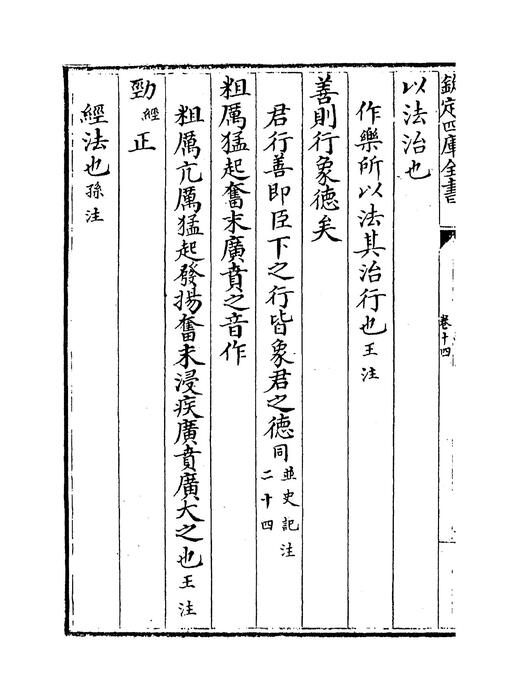 欽定四庫全書
卷十四
以法治也
作樂所以法其治行也王注
善則行象德矣
君行善即臣下之行皆象君之德同並史記注二十四
粗厲猛起奮末廣賁之音作
粗厲亢厲猛起發揚奮末浸疾廣賁廣大之也王注
勁經正
經法也孫注